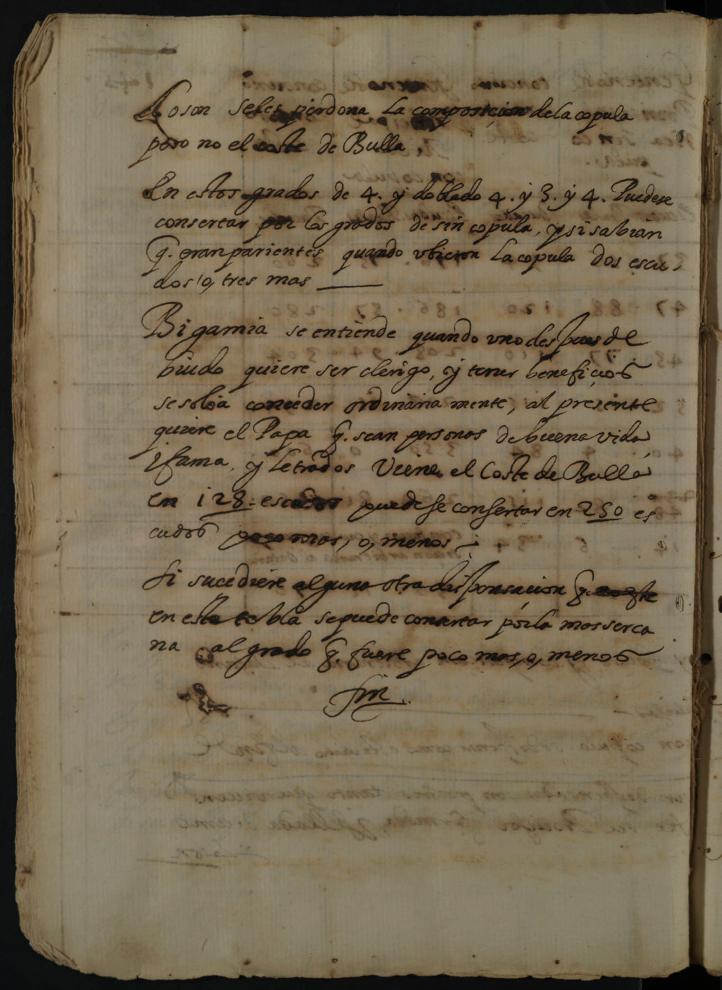 Lo son se les pierdona la composicion de la copula
pero no el coste de Bulla.
En estos grados de 4. y doblado 4. y 3. y 4. Puedese
consertar por los grados de sin copula, y si sabian
q. eran parientes quando ubieron la copula dos escu-
dos, o, tres mas
Bigamia se entiende quando uno despues de
biudo quiere ser clerigo, y tener beneficios
se solia conceder ordinaria mente, al presente
quiere el Papa q. sean personas de buena vida
y fama, y letrados Viene el Coste de Bulla
en 128: escudos puedese consertar en 250 es
cudos poco mas, o, menos
Si sucediere alguna otra dispensacion q. no este
en esta tabla se puede consertar por la mas serca
na al grado q. fuere poco mas, o, menos
Fin